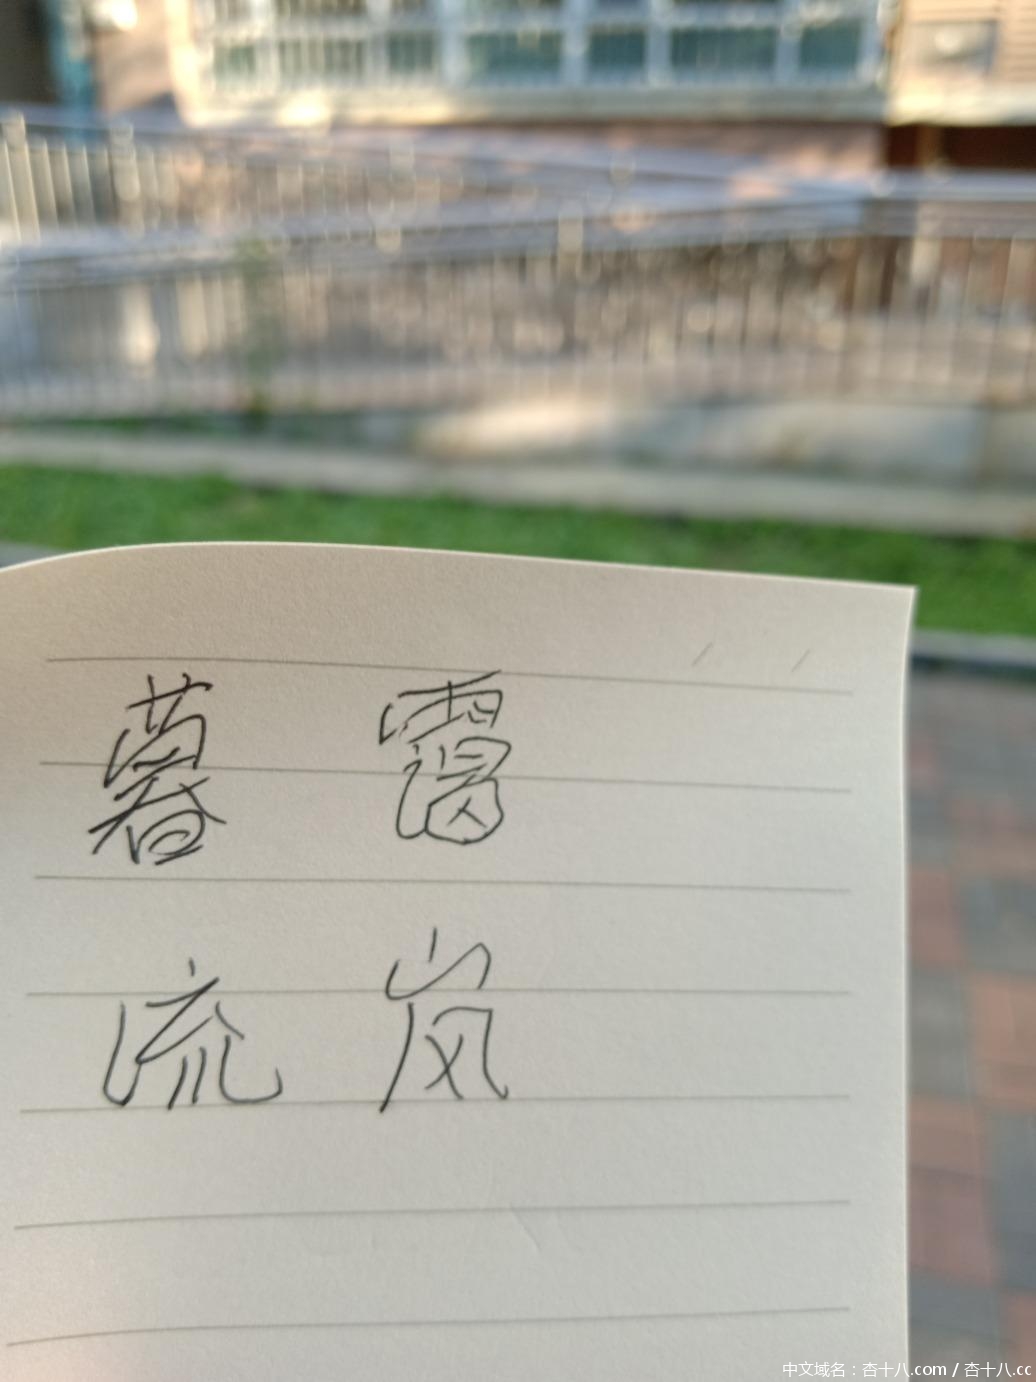 暮霭
流岚
中文域名：杏十八.com / 杏十八.cc